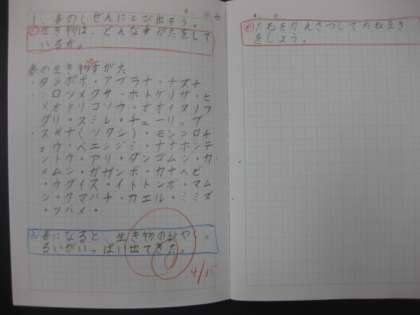 1、春のしぜんにとび出そう。
生き物は、どんなすがたをして
いるか。
春の生き物すがた
・タンポポ・アブラナ・ナズナ
・シロツメクサ・ホトケノザ・ヒ
メオドリコソウ・オオイヌノフ
グリ・スミレ・チューリップ
・スギナ(ツクシ)・モンシロチ
ョウ・ベニシジミ・ナナホシテ
ントウ・アリ・ダンゴムシ・カ
メムシ・ガガンボ・カナヘビ
・ウグイス・イトトンボ・マム
シ・クマバチ・カエル・ミミズ
・ツバメ・
春になると、生き物のしゅ
るいがいっぱい出てきた。
4/15
たねをかんさつしてたねまき
をしよう。